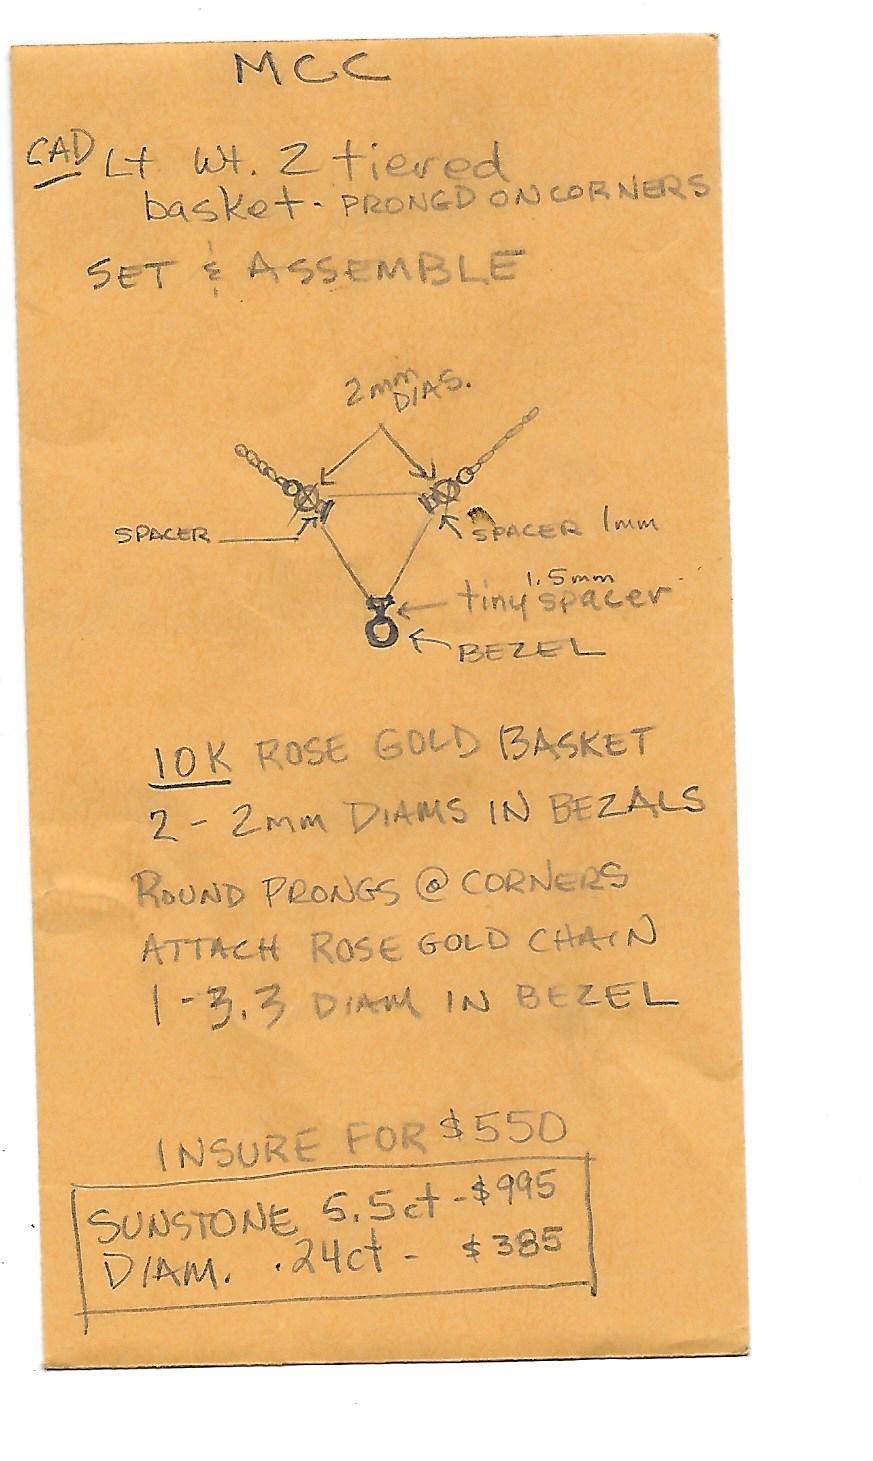 MCC
CAD Lt Wt. 2 tiered
basket - PRONGD ON CORNERS
SET & ASSEMBLE
2mm
DIAS.
SPACER
SPACER 1mm
1.5mm
tiny spacer
BEZEL
10K ROSE GOLD BASKET
2 - 2mm DIAMS IN BEZALS
ROUND PRONGS @ CORNERS
ATTACH ROSE GOLD CHAIN
1 - 3.3 DIAM IN BEZEL
INSURE FOR $550
SUNSTONE 5.5ct - $995
DIAM. .24ct - $385